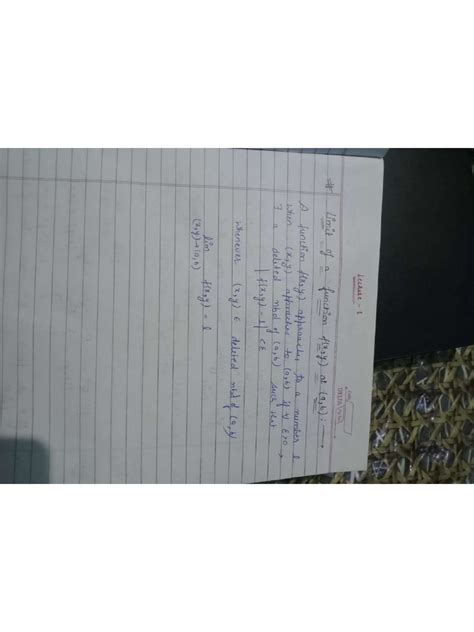 Lecture - 1
# Limit of a function f(x,y) at (a,b) : ⟶
A function f(x,y) approaches to a number l
when (x,y) approaches to (a,b) if ∀ ε>0 →
∃ a deleted nbd of (a,b) such that
|f(x,y) - l| < ε
whenever (x,y) ∈ deleted nbd of (a,b)
lim f(x,y) = l
(x,y)→(a,b)